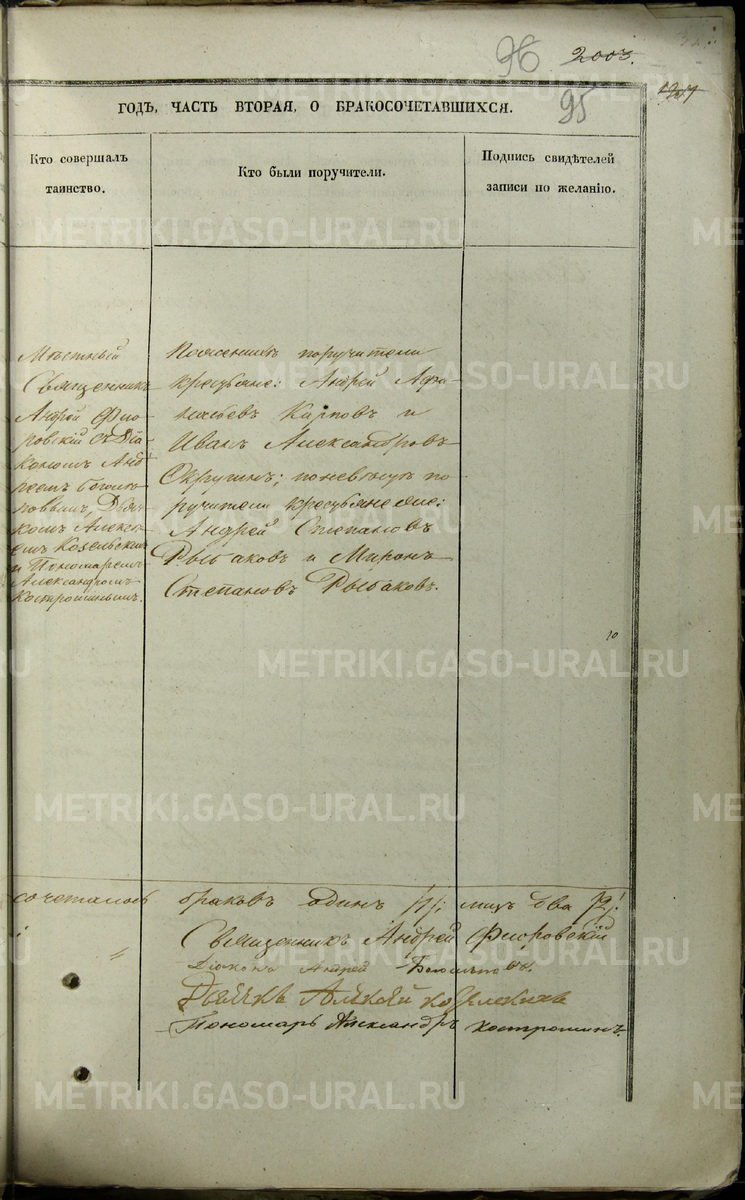 96 2003.
ГОДЪ, ЧАСТЬ ВТОРАЯ, О БРАКОСОЧЕТАВШИХСЯ.
95
Кто совершалъ
таинство.
Кто были поручители.
Подпись свидѣтелей
записи по желанію.
Мѣстный
Священникъ
Андрей Фло-
ровскій съ Діа-
кономъ Анд
реемъ
Дьяч-
комъ Алексѣ-
емъ Козельскимъ
и Пономаремъ
Александромъ
Костроминымъ.
По женихѣ поручители
крестьяне: Андрей Афа-
насьевъ Карповъ и
Иванъ Александровъ
по невѣстѣ по
ручители крестьяне
Андрей Степановъ
Рыбаковъ и Миронъ
Степановъ Рыбаковъ.
10
сочеталось браковъ одинъ /1/; лицъ два /2/.
Священникъ Андрей Флоровскій
Діаконъ Андрей
Дьячекъ Алексѣй
Пономарь Александръ Костроминъ.
METRIKI.GASO-URAL.RU